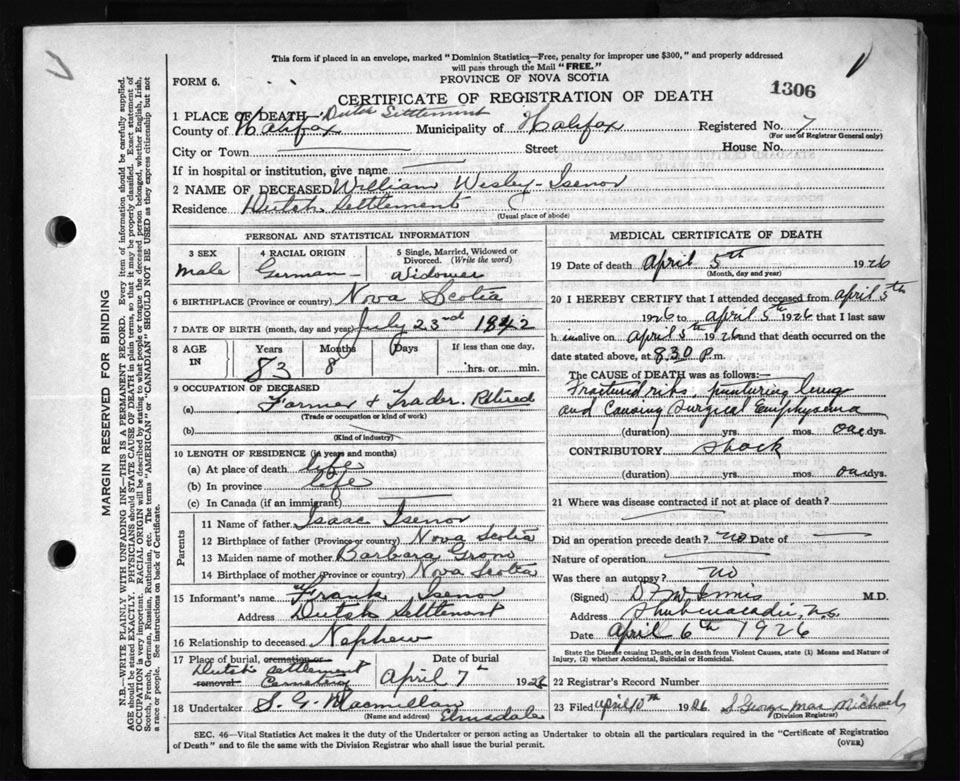 This form if placed in an envelope, marked "Dominion Statistics—Free, penalty for improper use $300," and properly addressed
will pass through the Mail "FREE."
FORM 6.
PROVINCE OF NOVA SCOTIA
1306
CERTIFICATE OF REGISTRATION OF DEATH
1 PLACE OF DEATH— Dutch Settlement
County of Halifax Municipality of Halifax Registered No. 7
(For use of Registrar General only)
City or Town Street House No.
If in hospital or institution, give name
2 NAME OF DECEASED William Wesley Isenor
Residence Dutch Settlement
(Usual place of abode)
PERSONAL AND STATISTICAL INFORMATION
3 SEX 4 RACIAL ORIGIN 5 Single, Married, Widowed or
Divorced. (Write the word)
Male German Widower
6 BIRTHPLACE (Province or country) Nova Scotia
7 DATE OF BIRTH (month, day and year) July 23rd 1842
8 AGE IN Years Months Days If less than one day,
83 8 hrs. or min.
9 OCCUPATION OF DECEASED
(a) Farmer & Trader. Retired
(Trade or occupation or kind of work)
(b)
(Kind of industry)
10 LENGTH OF RESIDENCE (in years and months)
(a) At place of death life
(b) In province life
(c) In Canada (if an immigrant)
Parents
11 Name of father Isaac Isenor
12 Birthplace of father (Province or country) Nova Scotia
13 Maiden name of mother Barbara Grono
14 Birthplace of mother (Province or country) Nova Scotia
15 Informant's name Frank Isenor
Address Dutch Settlement
16 Relationship to deceased Nephew
17 Place of burial, cremation or Date of burial
removal Dutch Settlement
Cemetery April 7th 1926
18 Undertaker S. G. Macmillan
(Name and address) Elmsdale
MEDICAL CERTIFICATE OF DEATH
19 Date of death April 5th 1926
(Month, day and year)
20 I HEREBY CERTIFY that I attended deceased from April 5th
1926 to April 5th 1926 that I last saw
h im alive on April 5th 1926 and that death occurred on the
date stated above, at 8.30 P.m.
The CAUSE OF DEATH was as follows:—
Fractured ribs, puncturing lung
and Causing Surgical Emphysema
(duration) yrs. mos. one dys.
CONTRIBUTORY Shock
(duration) yrs. mos. one dys.
21 Where was disease contracted if not at place of death?
Did an operation precede death? no Date of
Nature of operation
Was there an autopsy? no
(Signed) M.D.
Address Shubenacadie, N.S.
Date April 6th 1926
State the Disease causing Death, or in death from Violent Causes, state (1) Means and Nature of
Injury, (2) whether Accidental, Suicidal or Homicidal.
22 Registrar's Record Number
23 Filed April 10th 1926 S George MacMichael
(Division Registrar)
SEC. 46—Vital Statistics Act makes it the duty of the Undertaker or person acting as Undertaker to obtain all the particulars required in the "Certificate of Registration
of Death" and to file the same with the Division Registrar who shall issue the burial permit.
(OVER)
MARGIN RESERVED FOR BINDING
N.B.—WRITE PLAINLY WITH UNFADING INK—THIS IS A PERMANENT RECORD. Every item of information should be carefully supplied.
AGE should be stated EXACTLY. PHYSICIANS should STATE CAUSE OF DEATH in plain terms, so that it may be properly classified. Exact statement of
OCCUPATION is very important. RACIAL ORIGIN will be described by stating to what people or tongue the deceased person belonged, whether English, Irish,
Scotch, French, German, Russian, Ruthenian, etc. The terms "AMERICAN" or "CANADIAN" SHOULD NOT BE USED as they express citizenship but not
a race or people. See instructions on back of Certificate.